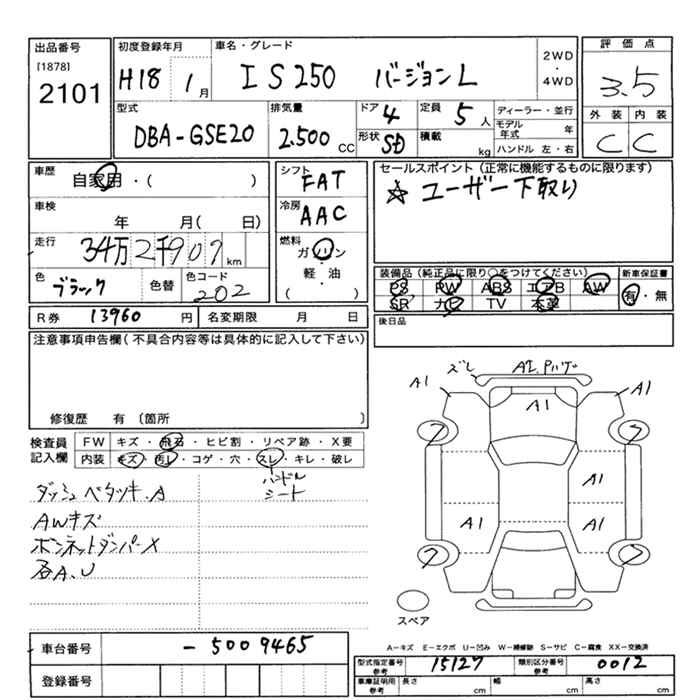 出品番号
[1878]
2101
初度登録年月
H18 1月
車名・グレード
IS250 バージョンL
2WD
・
4WD
評価点
3.5
外装 内装
C C
型式
DBA-GSE20
排気量
2.500 CC
ドア 4
形状 SD
定員 5 人
積載 kg
ディーラー・並行
モデル年式 年
ハンドル 左・右
車歴 自家用・( )
車検 年 月( 日)
走行 34万2千907 km
色 ブラック 色替 色コード 202
シフト FAT
冷房 AAC
燃料 ガソリン
・
軽油
( )
セールスポイント(正常に機能するものに限ります)
☆ユーザー下取り
装備品(純正品に限り○をつけてください) 新車保証書
PS PW ABS エアB AW 有・無
SR ナビ TV 本革
R券 13960 円 名変期限 月 日
後日品
注意事項申告欄(不具合内容等は具体的に記入して下さい)
修復歴 有(箇所 )
検査員記入欄
FW キズ・飛石・ヒビ割・リペア跡・X要
内装 キズ・汚レ・コゲ・穴・スレ・キレ・破レ
ハンドル
シート
ダッシュベタツキ.A
AWキズ
ボンネットダンパーX
各A.U
ズレ
A1
A1
A1
A1
A1
A1
スペア
A-キズ E-エクボ U-凹み W-補修跡 S-サビ C-腐食 XX-交換済
車台番号 -5009465
登録番号
型式指定番号 参考 15127 類別区分番号 参考 0012
車庫証明用 参考 長さ cm 幅 cm 高さ cm